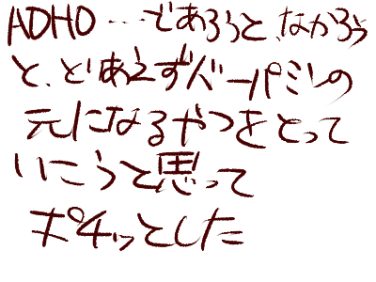 ADHD…であろうと、なかろう
と、とりあえずドーパミンの
元になるやつをとって
いこうと思って
ポチッとした